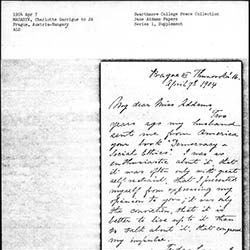 1904 Apr 7
MASARYK, Charlotte Garrigue to JA
Prague, Austria-Hungary
ALS
Swarthmore College Peace Collection
Jane Addams Papers
Series 1, Supplement
Prague III Thunovská 16.
April 7th 1904
My dear Miss Addams,
Two
years ago my husband
sent me from America
your book "Democracy &
Social Ethics". I was so
enthusiastic about it, that
it was often only with great
self-restraint, that I prevented
myself from expressing my
opinion to you; it was only
the conviction, that it is
better to live up to it than
to talk about it, that conquered
my impulse.